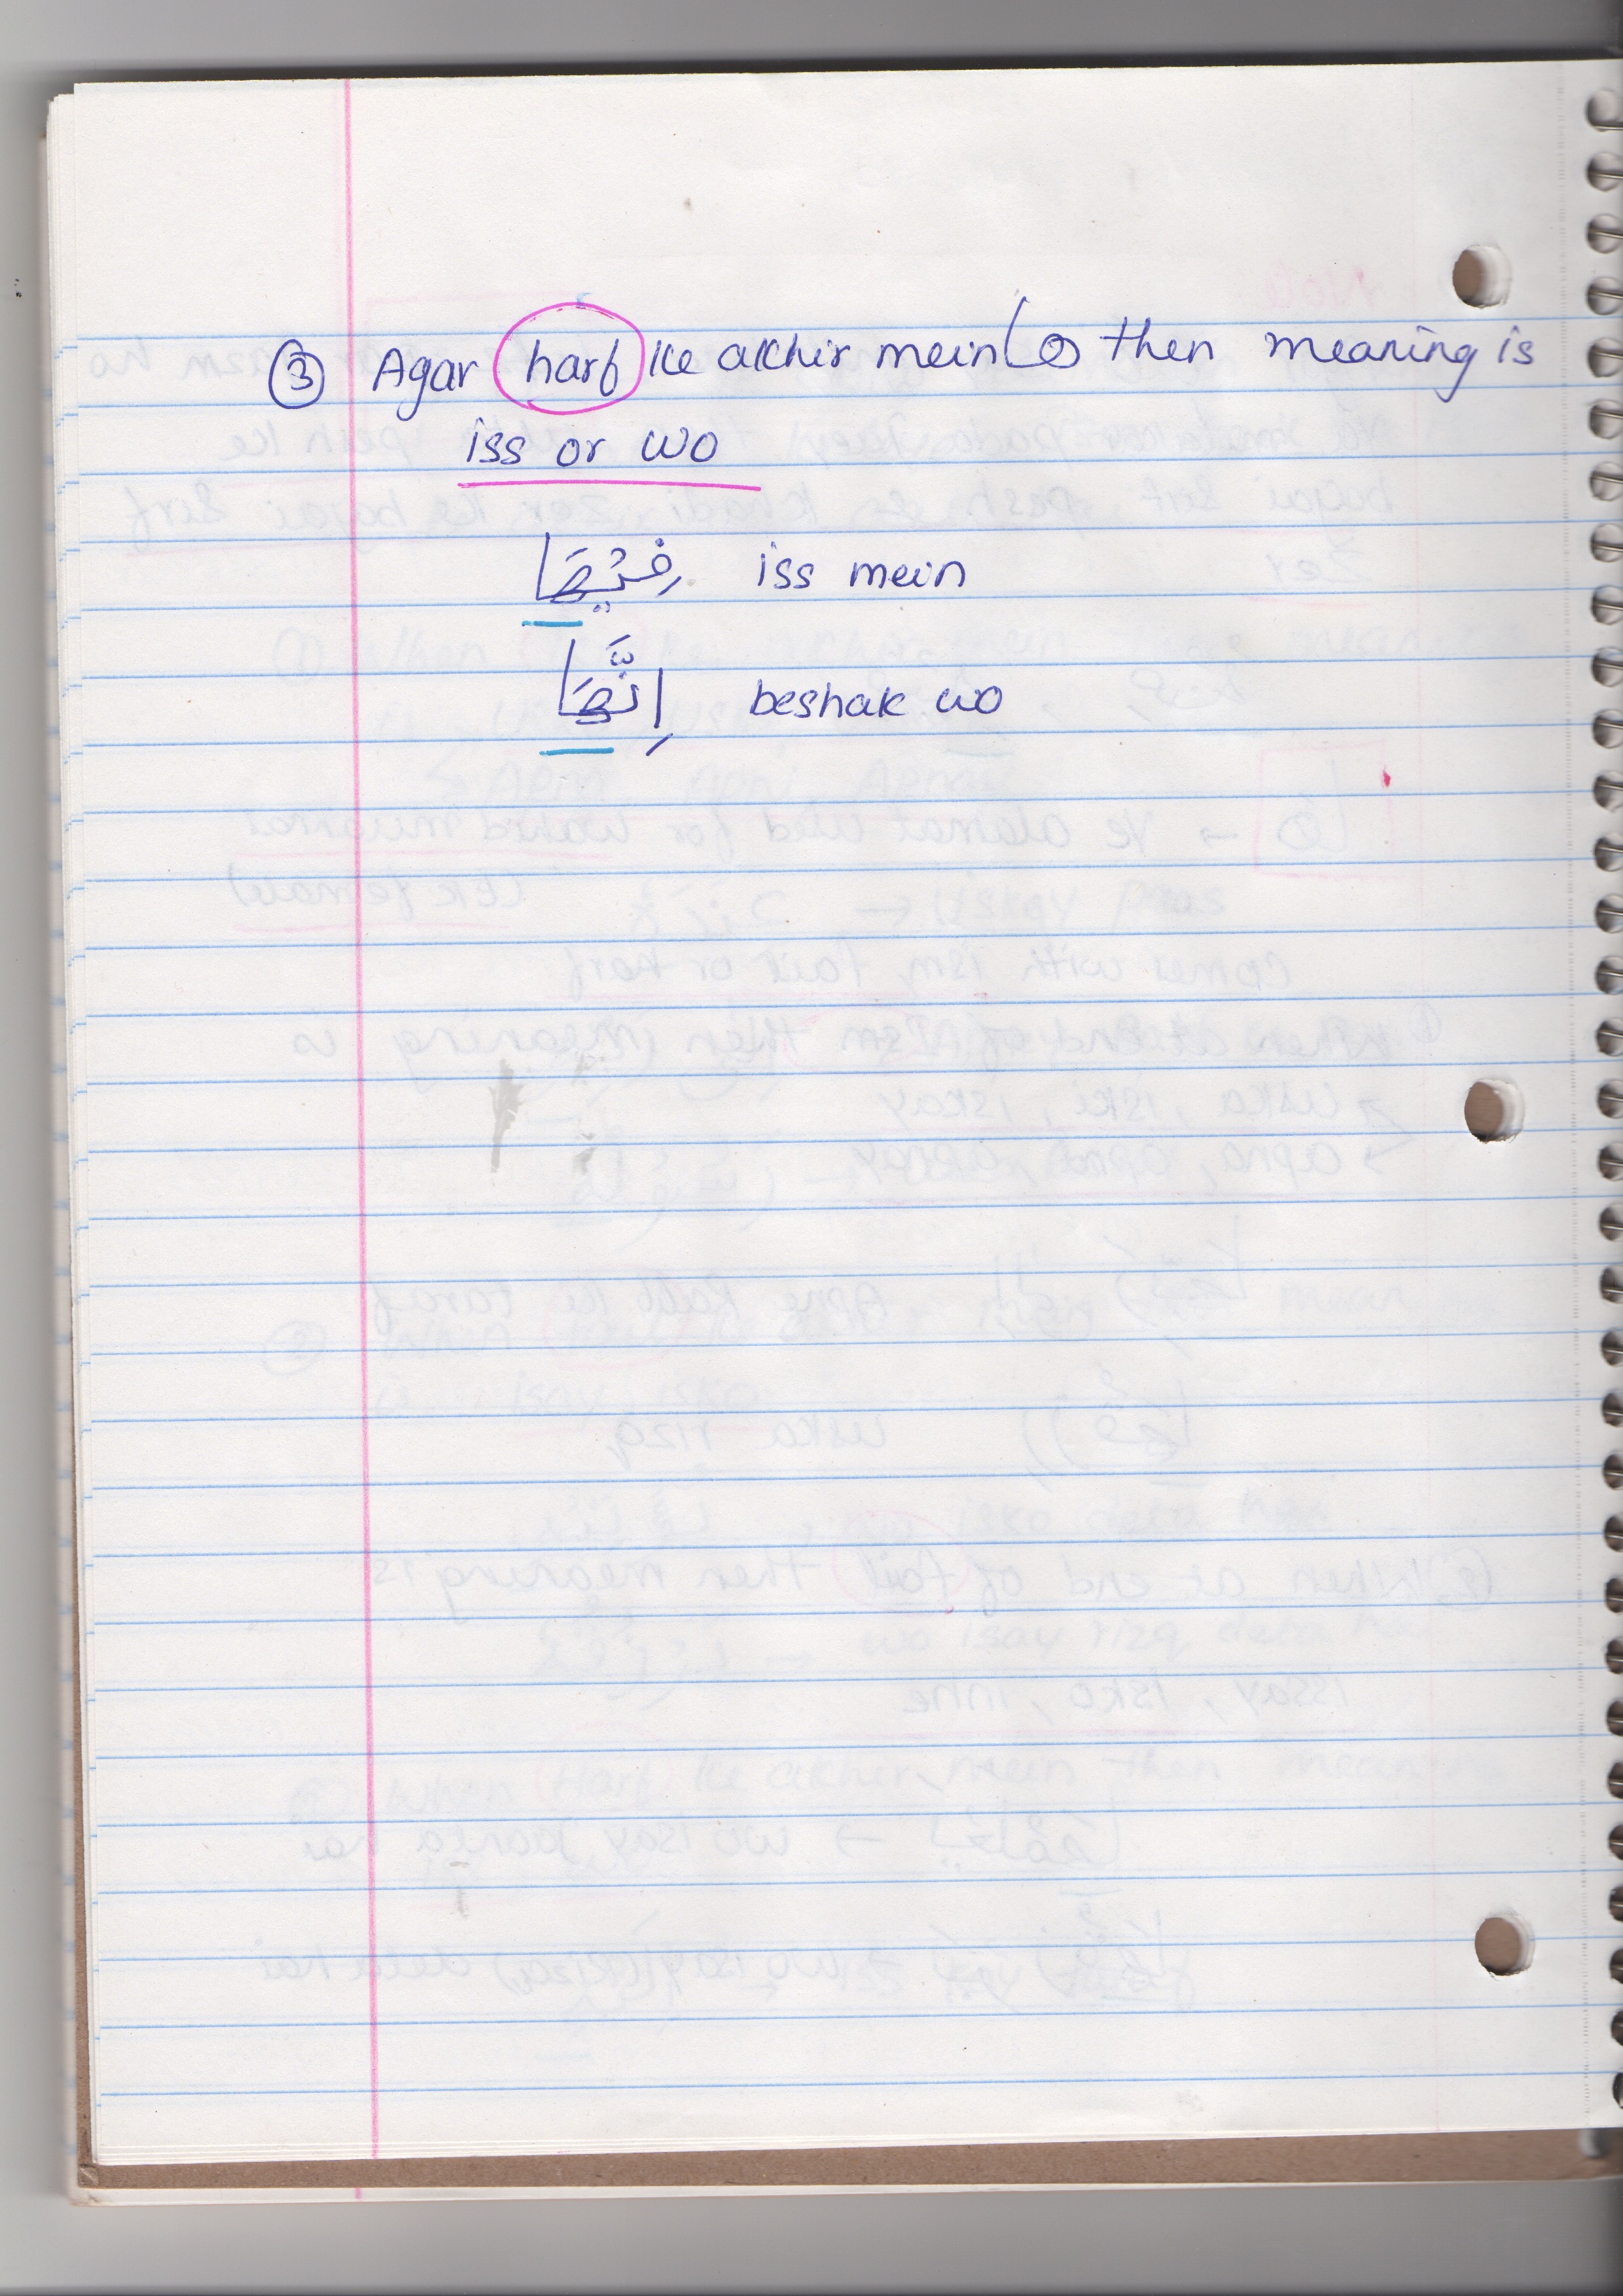 ③ Agar harf ke akhir mein ها then meaning is
iss or wo
فِيْهَا iss mein
اِنَّهَا beshak wo